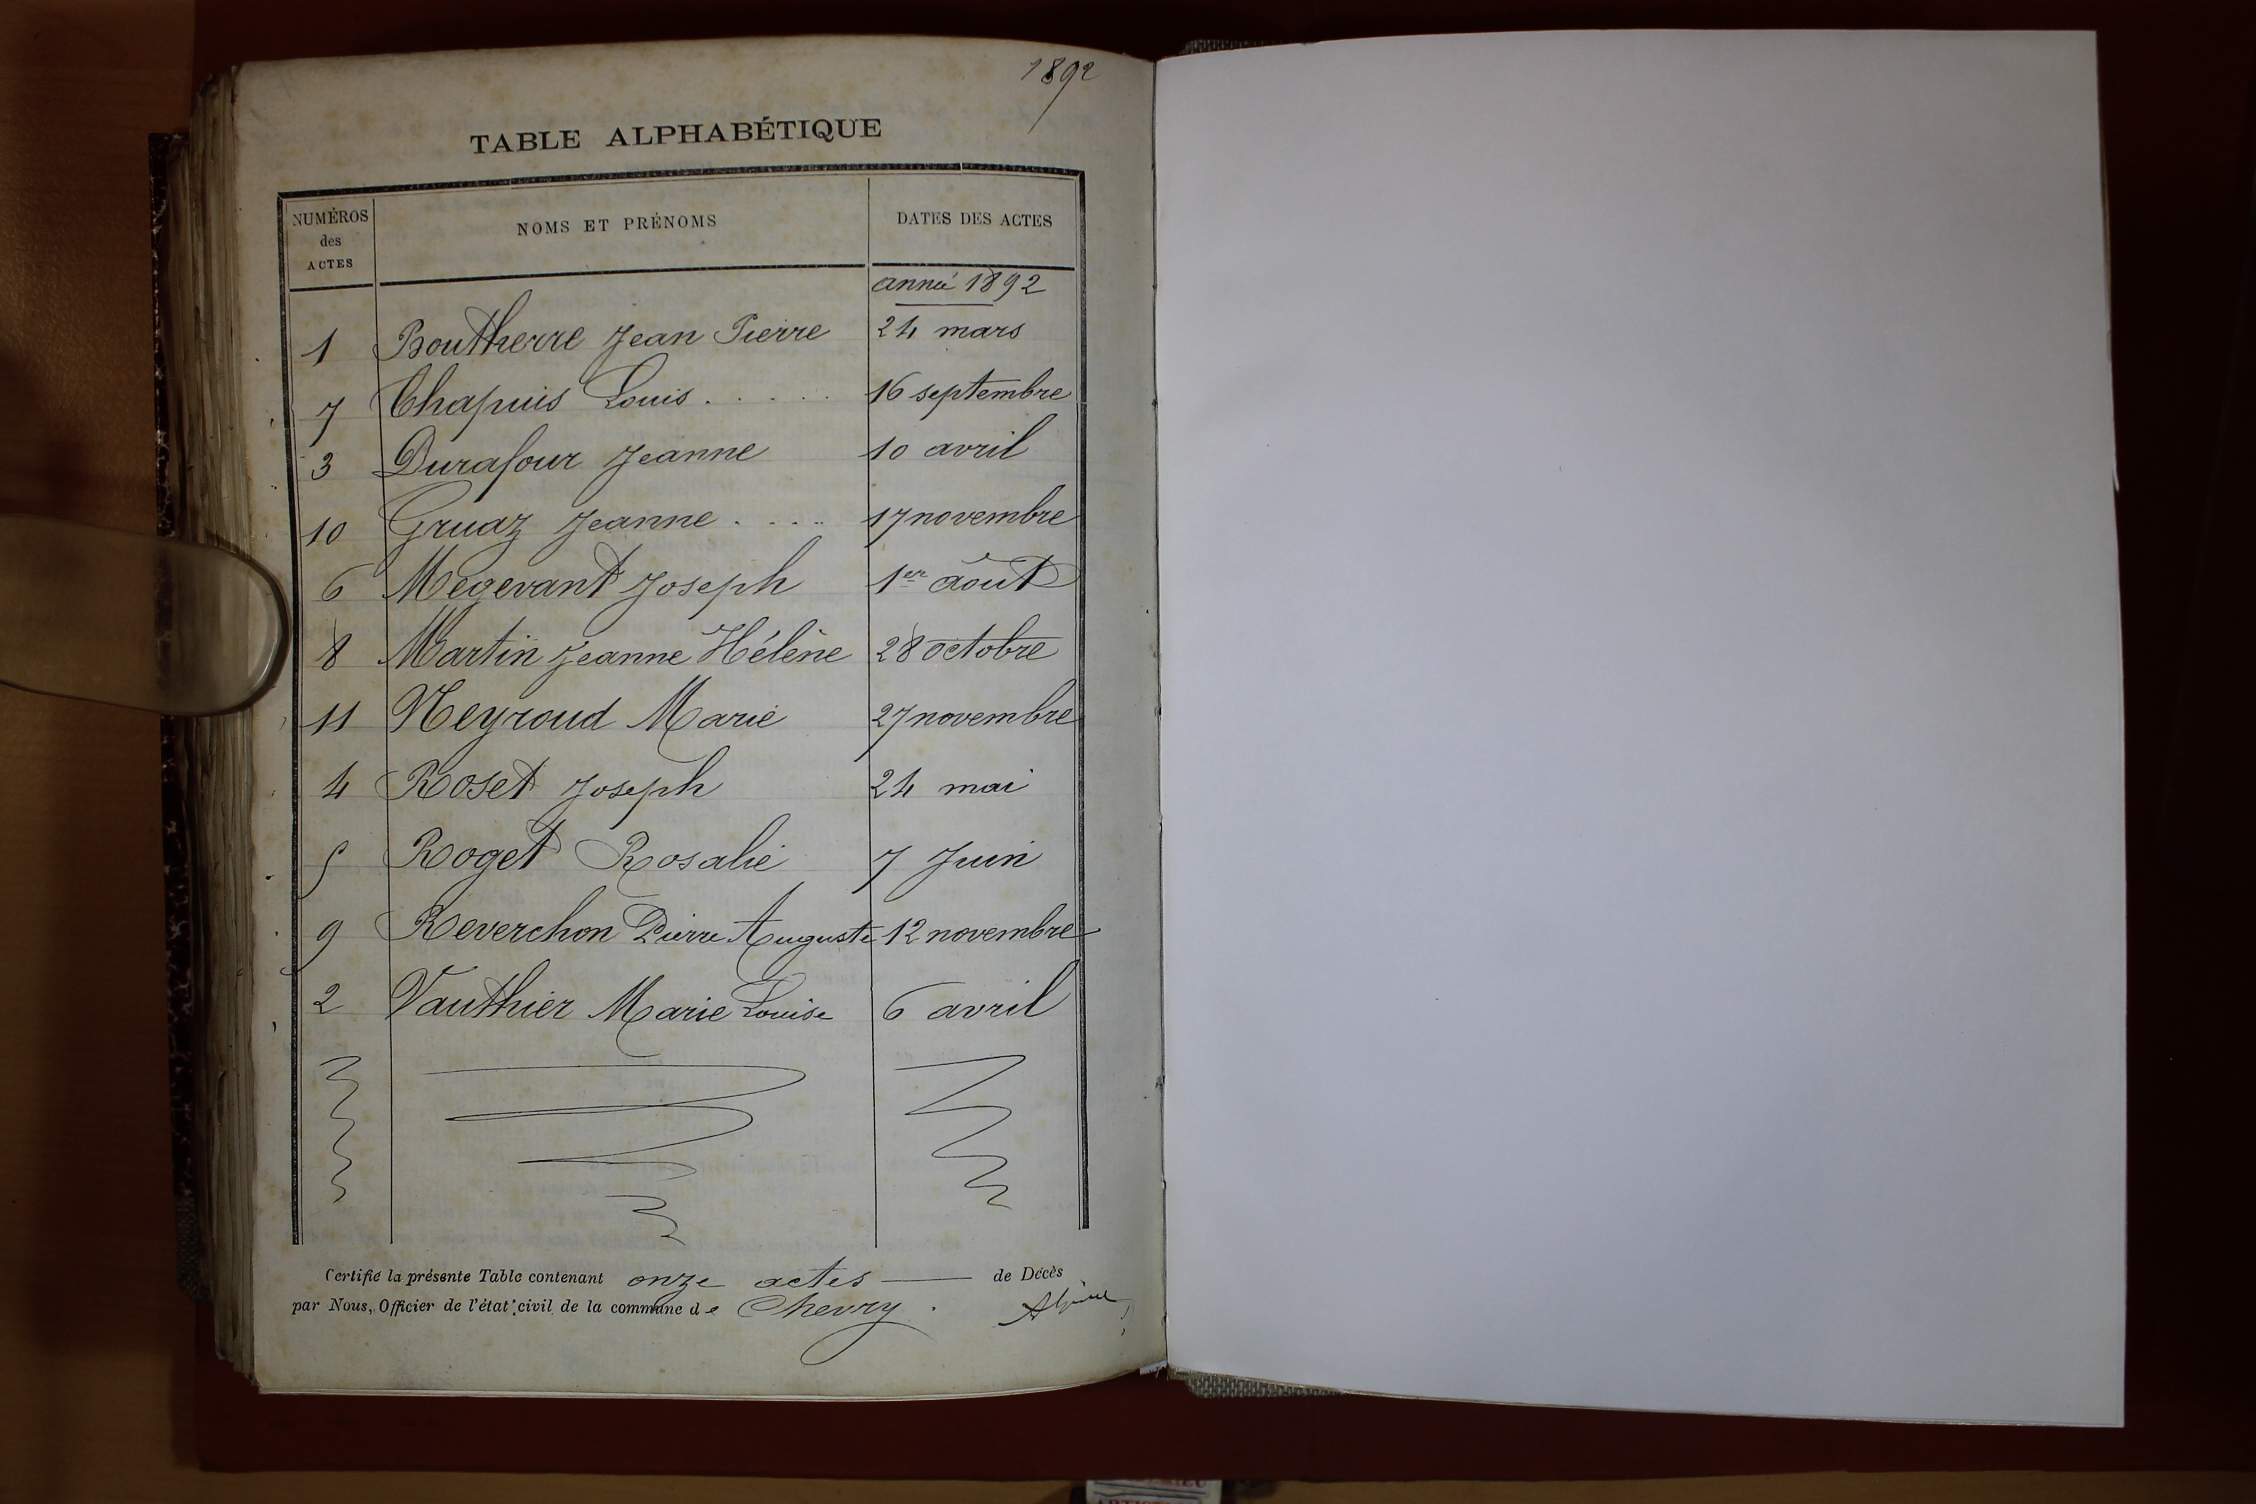 1892
TABLE ALPHABÉTIQUE
NUMÉROS des ACTES NOMS ET PRÉNOMS DATES DES ACTES
année 1892
1 Boutherre Jean Pierre 24 mars
7 Chapuis Louis . . . . . . 16 septembre
3 Durafour Jeanne 10 avril
10 Gruaz Jeanne . . . . 17 novembre
6 Megevant Joseph 1er août
8 Martin Jeanne Hélène 28 octobre
11 Neyroud Marie 27 novembre
4 Roset Joseph 24 mai
5 Roget Rosalie 7 Juin
9 Reverchon Pierre Auguste 12 novembre
2 Vauthier Marie Louise 6 avril
Certifié la présente Table contenant onze actes de Décès
par Nous, Officier de l'état civil de la commune de Chevry.